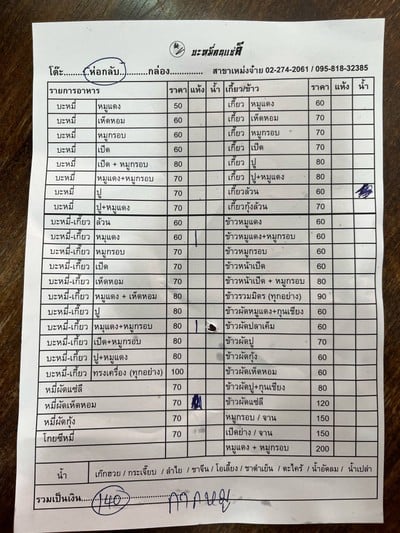 บะหมี่คนแซ่ลี
โต๊ะ...........ห่อกลับ...........กล่อง............... สาขาเหม่งจ๋าย 02-274-2061 / 095-818-32385
รายการอาหาร ราคา แห้ง น้ำ เกี๊ยว/ข้าว ราคา แห้ง น้ำ
บะหมี่ หมูแดง 50 เกี๊ยว หมูแดง 60
บะหมี่ เห็ดหอม 70 เกี๊ยว เห็ดหอม 70
บะหมี่ หมูกรอบ 60 เกี๊ยว หมูกรอบ 70
บะหมี่ เป็ด 60 เกี๊ยว เป็ด 60
บะหมี่ เป็ด + หมูกรอบ 80 เกี๊ยว ปู 80
บะหมี่ หมูแดง+หมูกรอบ 70 เกี๊ยว ปู+หมูแดง 80
บะหมี่ ปู 70 เกี๊ยวล้วน 60
บะหมี่ ปู+หมูแดง 70 เกี๊ยวกุ้งล้วน 70
บะหมี่-เกี๊ยว ล้วน 60 ข้าวหมูแดง 60
บะหมี่-เกี๊ยว หมูแดง 60 | ข้าวหมูแดง+หมูกรอบ 60
บะหมี่-เกี๊ยว หมูกรอบ 70 ข้าวหมูกรอบ 60
บะหมี่-เกี๊ยว เป็ด 70 ข้าวหน้าเป็ด 60
บะหมี่-เกี๊ยว เห็ดหอม 70 ข้าวหน้าเป็ด + หมูกรอบ 80
บะหมี่-เกี๊ยว หมูแดง + เห็ดหอม 80 ข้าวรวมมิตร (ทุกอย่าง) 90
บะหมี่-เกี๊ยว ปู 80 ข้าวผัดหมูแดง+กุนเชียง 60
บะหมี่-เกี๊ยว หมูแดง+หมูกรอบ 80 | ข้าวผัดปลาเค็ม 60
บะหมี่-เกี๊ยว เป็ด+หมูกรอบ 80 ข้าวผัดปู 70
บะหมี่-เกี๊ยว ปู+หมูแดง 80 ข้าวผัดกุ้ง 60
บะหมี่-เกี๊ยว ทรงเครื่อง (ทุกอย่าง) 100 ข้าวผัดเห็ดหอม 60
หมี่ผัดแซ่ลี 70 ข้าวผัดปู+กุนเชียง 80
หมี่ผัดเห็ดหอม 70 ข้าวผัดแซ่ลี 120
หมี่ผัดกุ้ง 70 หมูกรอบ / จาน 150
โกยซีหมี่ 70 เป็ดย่าง / จาน 150
หมูแดง + หมูกรอบ 200
น้ำ เก๊กฮวย / กระเจี๊ยบ / ลำไย / ชาจีน / โอเลี้ยง / ชาดำเย็น / ตะไคร้ / น้ำอัดลม / น้ำเปล่า
รวมเป็นเงิน......140......